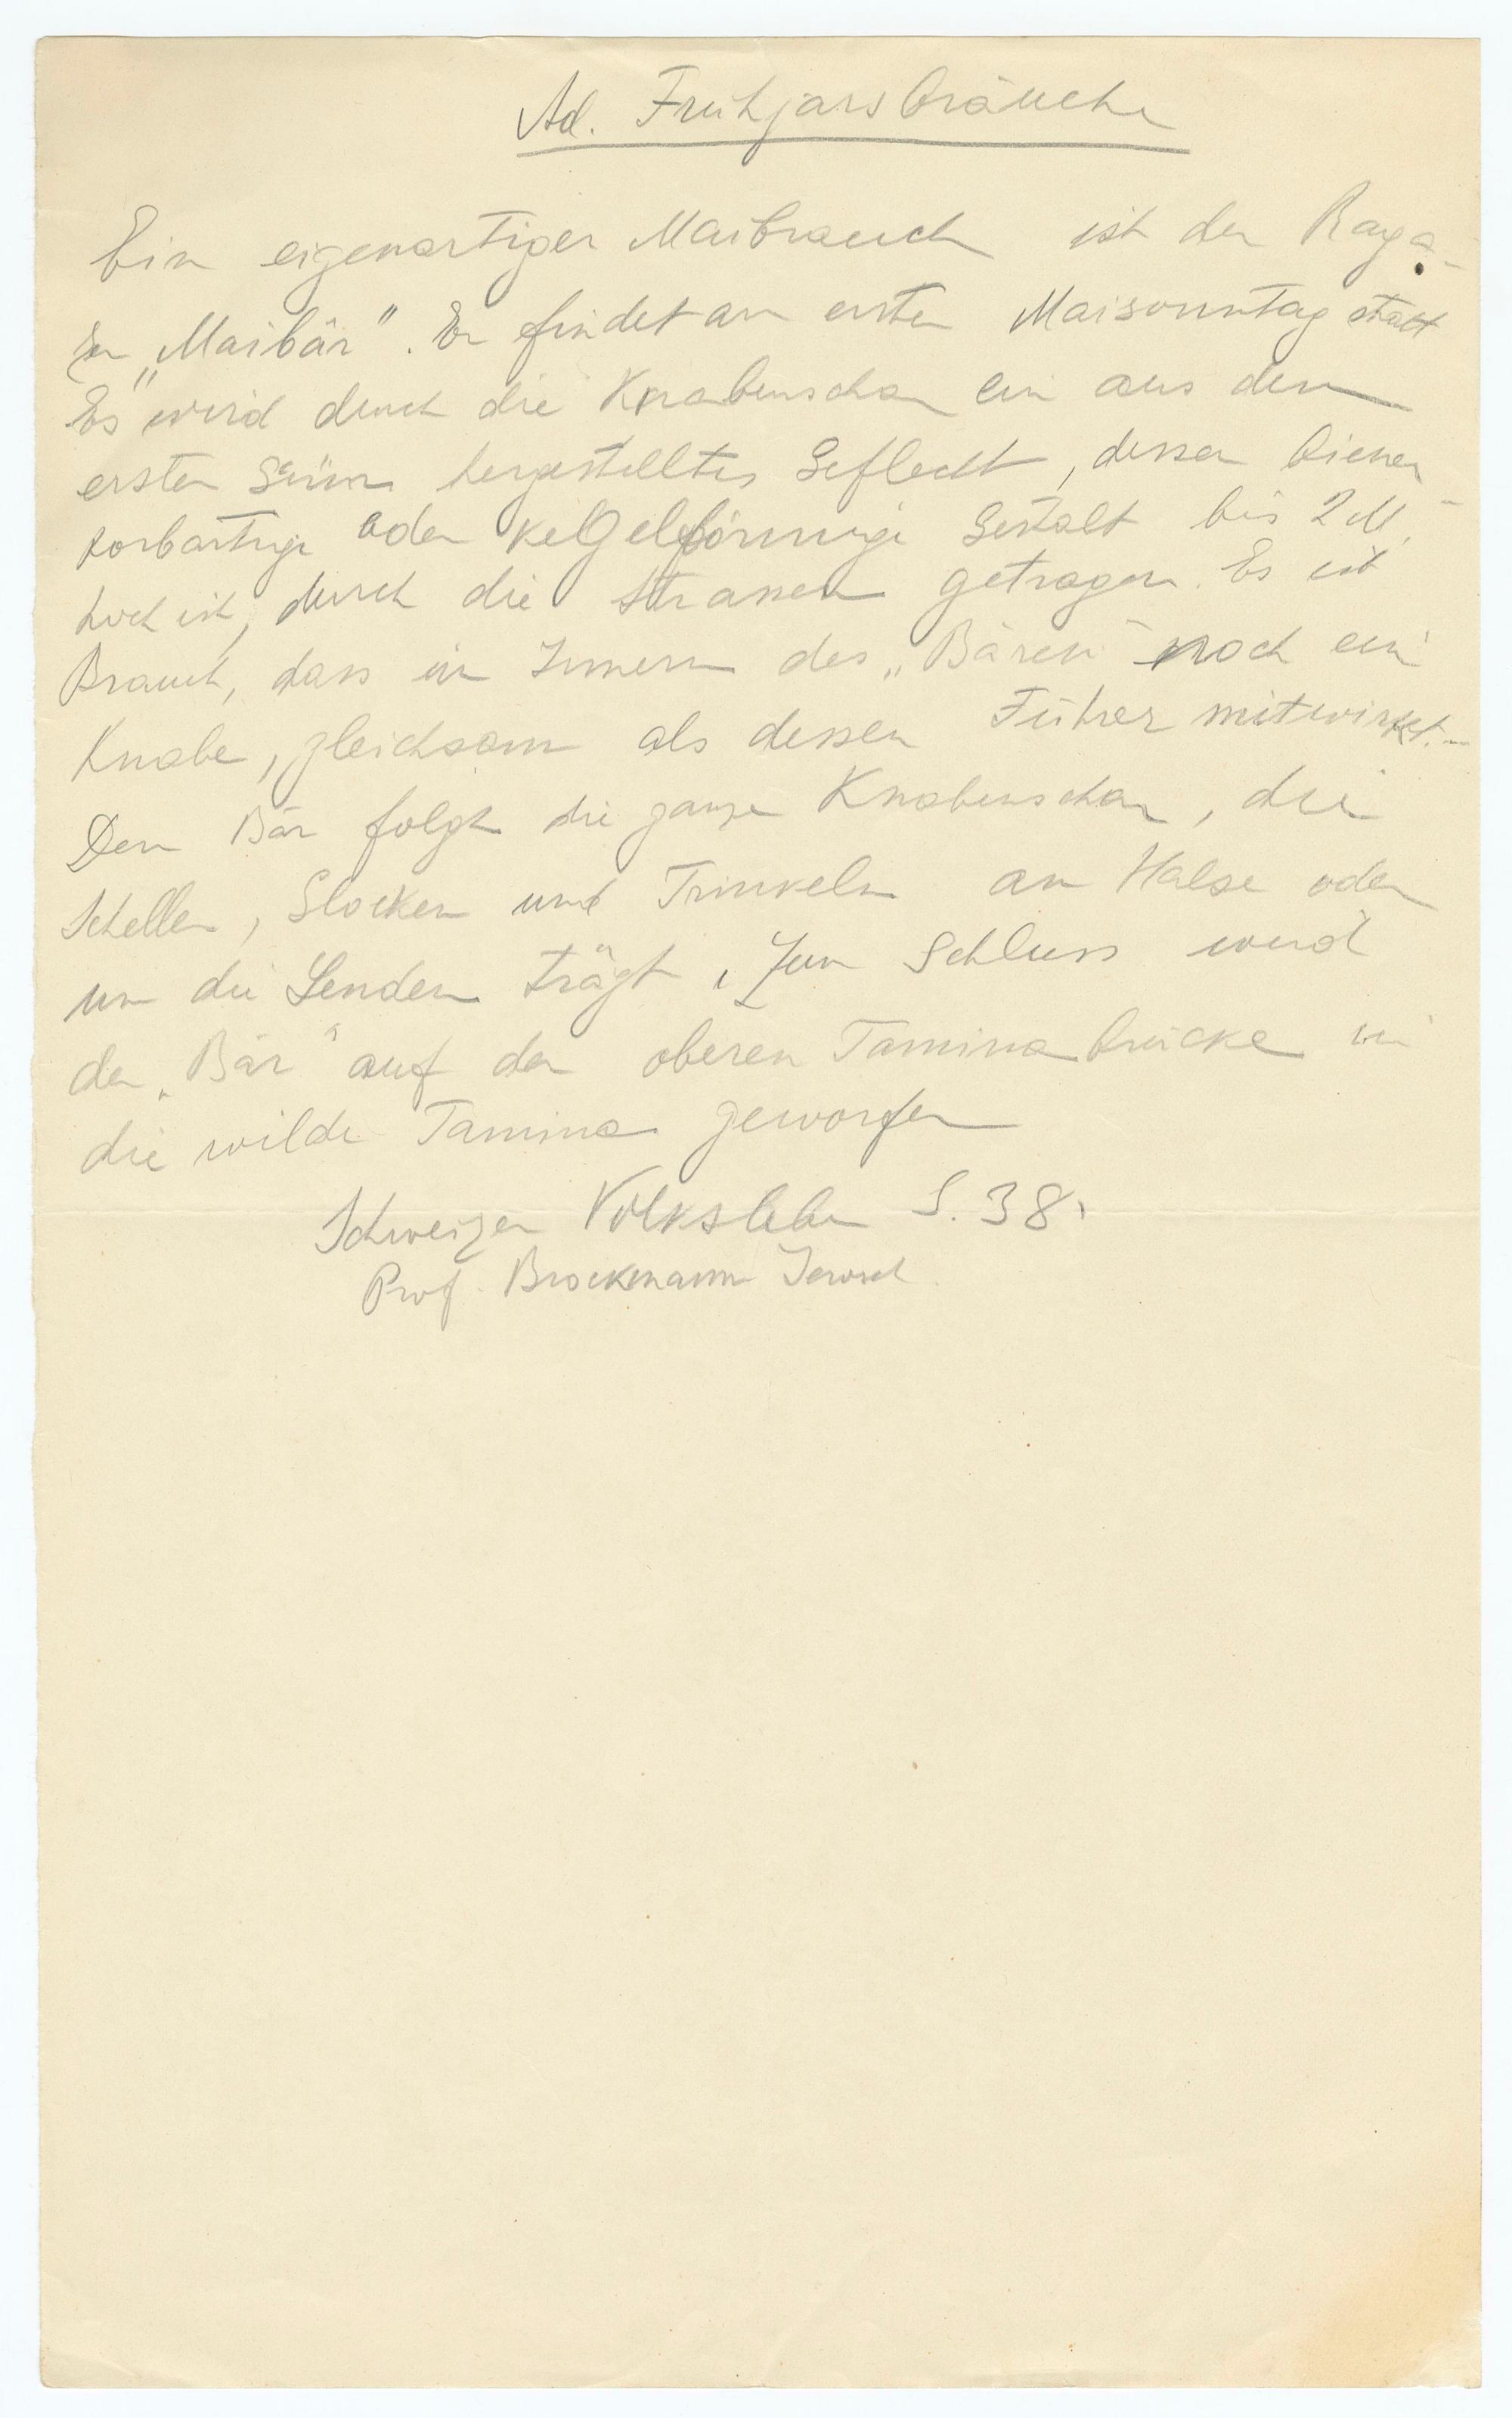 Ad. Frühjarsbräuche
Ein eigenartiger Maibrauch ist der Raga-
zer „Maibär". Er findet am ersten Maisonntag statt
Es wird durch die Knabenschar ein aus dem
ersten Grün hergestelltes Geflecht, dessen bienen-
korbartige oder kegelförmige Gestalt bis 2 M.
hoch ist, durch die Strassen getragen. Es ist
Brauch, dass im Innern des „Bären" noch ein
Knabe, gleichsam als dessen Führer mitwirkt.-
Dem Bär folgt die ganze Knabenschar, die
Schellen, Glocken und Trinkeln am Halse oder
um die Lenden trägt. Zum Schluss wird
der „Bär" auf der oberen Taminabrücke in
die wilde Tamina geworfen
Schweizer Volksleben S. 38.
Prof. Brockmann Jerosch